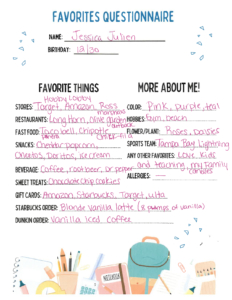 FAVORITES QUESTIONNAIRE
NAME: Jessica Julien
BIRTHDAY: 12/30
FAVORITE THINGS
Hobby Lobby
STORES: Target, Amazon, Ross
marshalls
RESTAURANTS: Longhorn, olive garden
outback
FAST FOOD: Taco bell, Chipotle
panera Chick-fil-a
SNACKS: Cheddar popcorn,
Cheetos, Doritos, ice cream
BEVERAGE: Coffee, rootbeer, dr pepper
SWEET TREATS: Chocolate chip cookies
GIFT CARDS: Amazon, Starbucks, Target, ulta
STARBUCKS ORDER: Blonde vanilla latte (8 pumps of vanilla)
DUNKIN ORDER: Vanilla iced coffee
MORE ABOUT ME!
COLOR: Pink, purple, teal
HOBBIES: Gym, beach
FLOWER/PLANT: Roses, daisies
SPORTS TEAM: Tampa Bay Lightning
ANY OTHER FAVORITES: Love kids
and teaching, my family
candles
ALLERGIES: